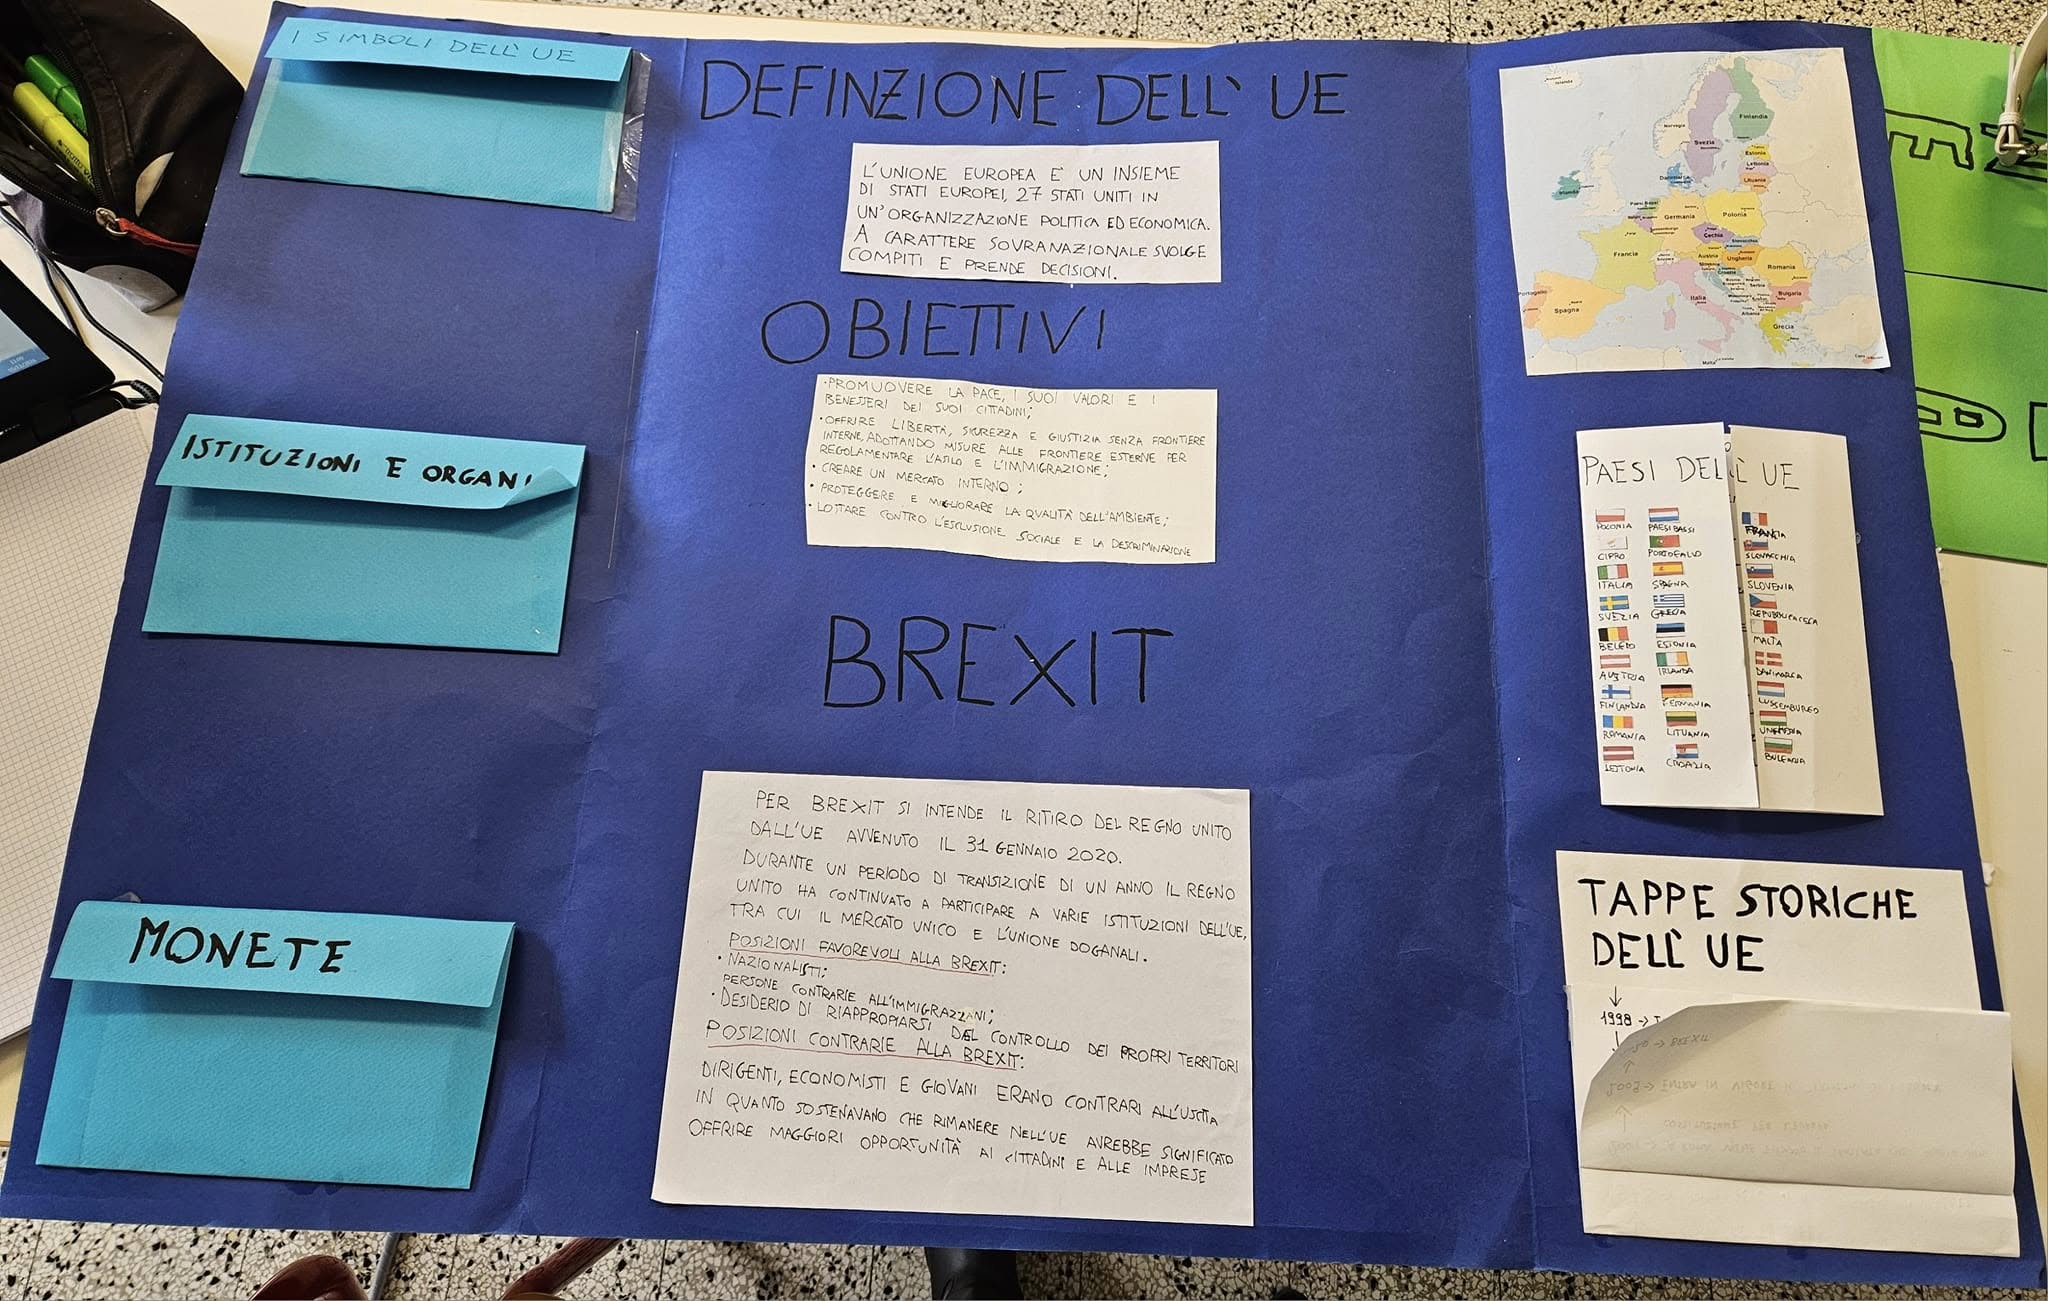 I SIMBOLI DELL' UE
ISTITUZIONI E ORGANI
MONETE
DEFINZIONE DELL' UE
L'UNIONE EUROPEA E' UN INSIEME
DI STATI EUROPEI, 27 STATI UNITI IN
UN'ORGANIZZAZIONE POLITICA ED ECONOMICA.
A CARATTERE SOVRANAZIONALE SVOLGE
COMPITI E PRENDE DECISIONI.
OBIETTIVI
• PROMUOVERE LA PACE, I SUOI VALORI E I
BENESSERI DEI SUOI CITTADINI;
• OFFRIRE LIBERTÀ, SICUREZZA E GIUSTIZIA SENZA FRONTIERE
INTERNE, ADOTTANDO MISURE ALLE FRONTIERE ESTERNE PER
REGOLAMENTARE L'ASILO E L'IMMIGRAZIONE;
• CREARE UN MERCATO INTERNO;
• PROTEGGERE E MIGLIORARE LA QUALITÀ DELL'AMBIENTE;
• LOTTARE CONTRO L'ESCLUSIONE SOCIALE E LA DESCRIMINAZIONE
BREXIT
PER BREXIT SI INTENDE IL RITIRO DEL REGNO UNITO
DALL'UE AVVENUTO IL 31 GENNAIO 2020.
DURANTE UN PERIODO DI TRANSIZIONE DI UN ANNO IL REGNO
UNITO HA CONTINUATO A PARTECIPARE A VARIE ISTITUZIONI DELL'UE,
TRA CUI IL MERCATO UNICO E L'UNIONE DOGANALI.
POSIZIONI FAVOREVOLI ALLA BREXIT:
• NAZIONALISTI;
PERSONE CONTRARIE ALL'IMMIGRAZZANI;
• DESIDERIO DI RIAPPROPIARSI DEL CONTROLLO DEI PROPRI TERRITORI
POSIZIONI CONTRARIE ALLA BREXIT:
DIRIGENTI, ECONOMISTI E GIOVANI ERANO CONTRARI ALL'USCITA
IN QUANTO SOSTENAVANO CHE RIMANERE NELL'UE AVREBBE SIGNIFICATO
OFFRIRE MAGGIORI OPPORTUNITÀ AI CITTADINI E ALLE IMPRESE
Islanda
Finlandia
Norvegia
Svezia
Estonia
Lettonia
Lituania
Irlanda
Paesi Bassi
Germania
Polonia
Cechia
Slovacchia
Francia
Austria
Ungheria
Romania
Italia
Bulgaria
Portogallo
Spagna
Albania
Grecia
Malta
PAESI DELL' UE
POLONIA PAESI BASSI FRANCIA
CIPRO PORTOGALLO SLOVACCHIA
ITALIA SPAGNA SLOVENIA
SVEZIA GRECIA REPUBBLICA CECA
BELGIO ESTONIA MALTA
AUSTRIA IRLANDA DANIMARCA
FINLANDIA GERMANIA LUSSEMBURGO
ROMANIA LITUANIA UNGHERIA
LETTONIA CROAZIA BULGARIA
TAPPE STORICHE
DELL' UE
1998 →